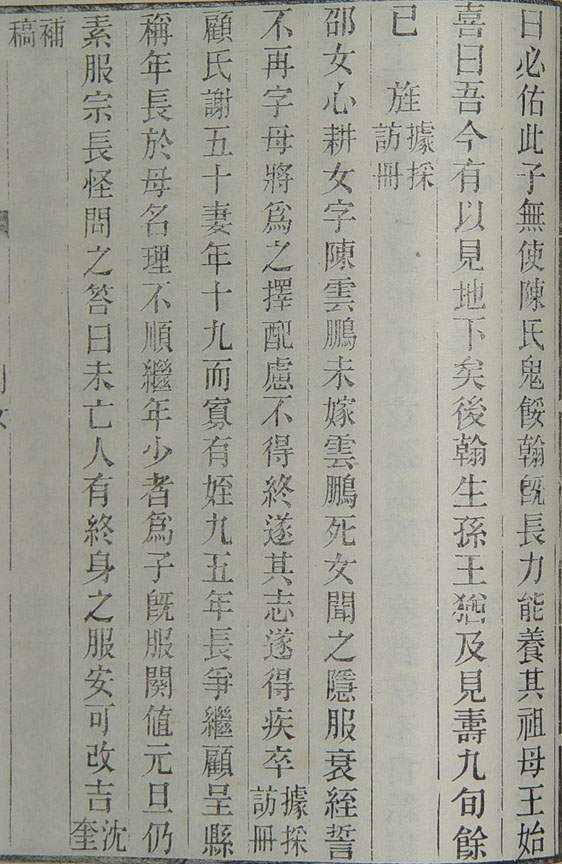 曰必佑此子無使陳氏鬼餒翰旣長力能養其祖母王始
喜曰吾今有以見地下矣後翰生孫王猶及見壽九旬餘
已　旌據採訪冊
邵女心耕女字陳雲鵬未嫁雲鵬死女聞之隱服衰絰誓
不再字母將爲之擇配慮不得終遂其志遂得疾卒據採訪冊
顧氏謝五十妻年十九而寡有姪九五年長爭繼顧呈縣
稱年長於母名理不順繼年少者爲子旣服闋值元旦仍
素服宗長怪問之答曰未亡人有終身之服安可改吉沈奎
補稿